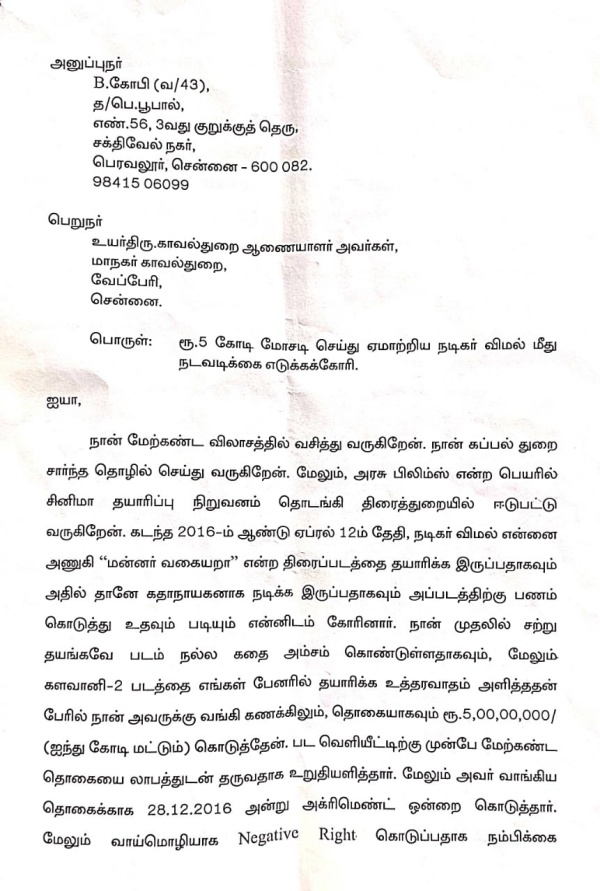 அனுப்புநர்
B.கோபி (வ/43),
த/பெ.பூபால்,
எண்.56, 3வது குறுக்குத் தெரு,
சக்திவேல் நகர்,
பெரவலூர், சென்னை – 600 082.
98415 06099
பெறுநர்
உயர்திரு.காவல்துறை ஆணையாளர் அவர்கள்,
மாநகர் காவல்துறை,
வேப்பேரி,
சென்னை.
பொருள்: ரூ.5 கோடி மோசடி செய்து ஏமாற்றிய நடிகர் விமல் மீது
நடவடிக்கை எடுக்கக்கோரி.
ஐயா,
நான் மேற்கண்ட விலாசத்தில் வசித்து வருகிறேன். நான் கப்பல் துறை
சார்ந்த தொழில் செய்து வருகிறேன். மேலும், அரசு பிலிம்ஸ் என்ற பெயரில்
சினிமா தயாரிப்பு நிறுவனம் தொடங்கி திரைத்துறையில் ஈடுபட்டு
வருகிறேன். கடந்த 2016-ம் ஆண்டு ஏப்ரல் 12ம் தேதி, நடிகர் விமல் என்னை
அணுகி “மன்னர் வகையறா” என்ற திரைப்படத்தை தயாரிக்க இருப்பதாகவும்
அதில் தானே கதாநாயகனாக நடிக்க இருப்பதாகவும் அப்படத்திற்கு பணம்
கொடுத்து உதவும் படியும் என்னிடம் கோரினார். நான் முதலில் சற்று
தயங்கவே படம் நல்ல கதை அம்சம் கொண்டுள்ளதாகவும், மேலும்
களவானி-2 படத்தை எங்கள் பேனரில் தயாரிக்க உத்தரவாதம் அளித்ததன்
பேரில் நான் அவருக்கு வங்கி கணக்கிலும், தொகையாகவும் ரூ.5,00,00,000/
(ஐந்து கோடி மட்டும்) கொடுத்தேன். பட வெளியீட்டிற்கு முன்பே மேற்கண்ட
தொகையை லாபத்துடன் தருவதாக உறுதியளித்தார். மேலும் அவர் வாங்கிய
தொகைக்காக 28.12.2016 அன்று அக்ரிமெண்ட் ஒன்றை கொடுத்தார்.
மேலும் வாய்மொழியாக Negative Right கொடுப்பதாக நம்பிக்கை